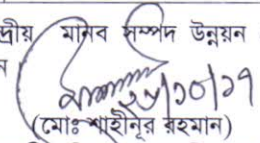 দ্রীয় মানব সম্পদ উন্নয়ন
ন
২৮/১০/১৭
(মোঃ শাহীনুর রহমান)